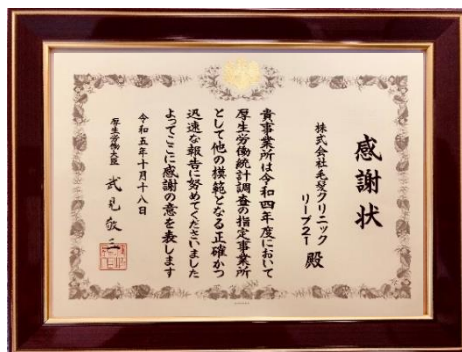 感謝状
株式会社毛髪クリニック
リーブ21 殿
貴事業所は令和四年度において
厚生労働統計調査の指定事業所
として他の模範となる正確かつ
迅速な報告に努めてくださいました
よってここに感謝の意を表します
令和五年十月十八日
厚生労働大臣 武見敬三